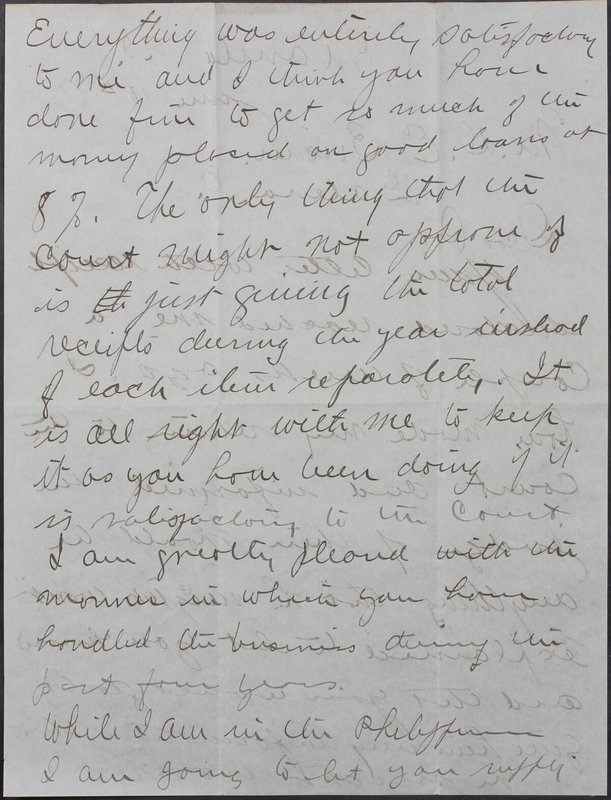 Everything was entirely satisfactory
to me and I think you have
done fine to get so much of the
money placed on good loans at
8%. The only thing that the
court might not approve of
is just giving the total
receipts during the year instead
of each item separately. It
is all right with me to keep
it as you have been doing if it
is satisfactory to the Court.
I am greatly pleased with the
manner in which you have
handled the business during the
past four years.
While I am in the Philippines
I am going to let you supply